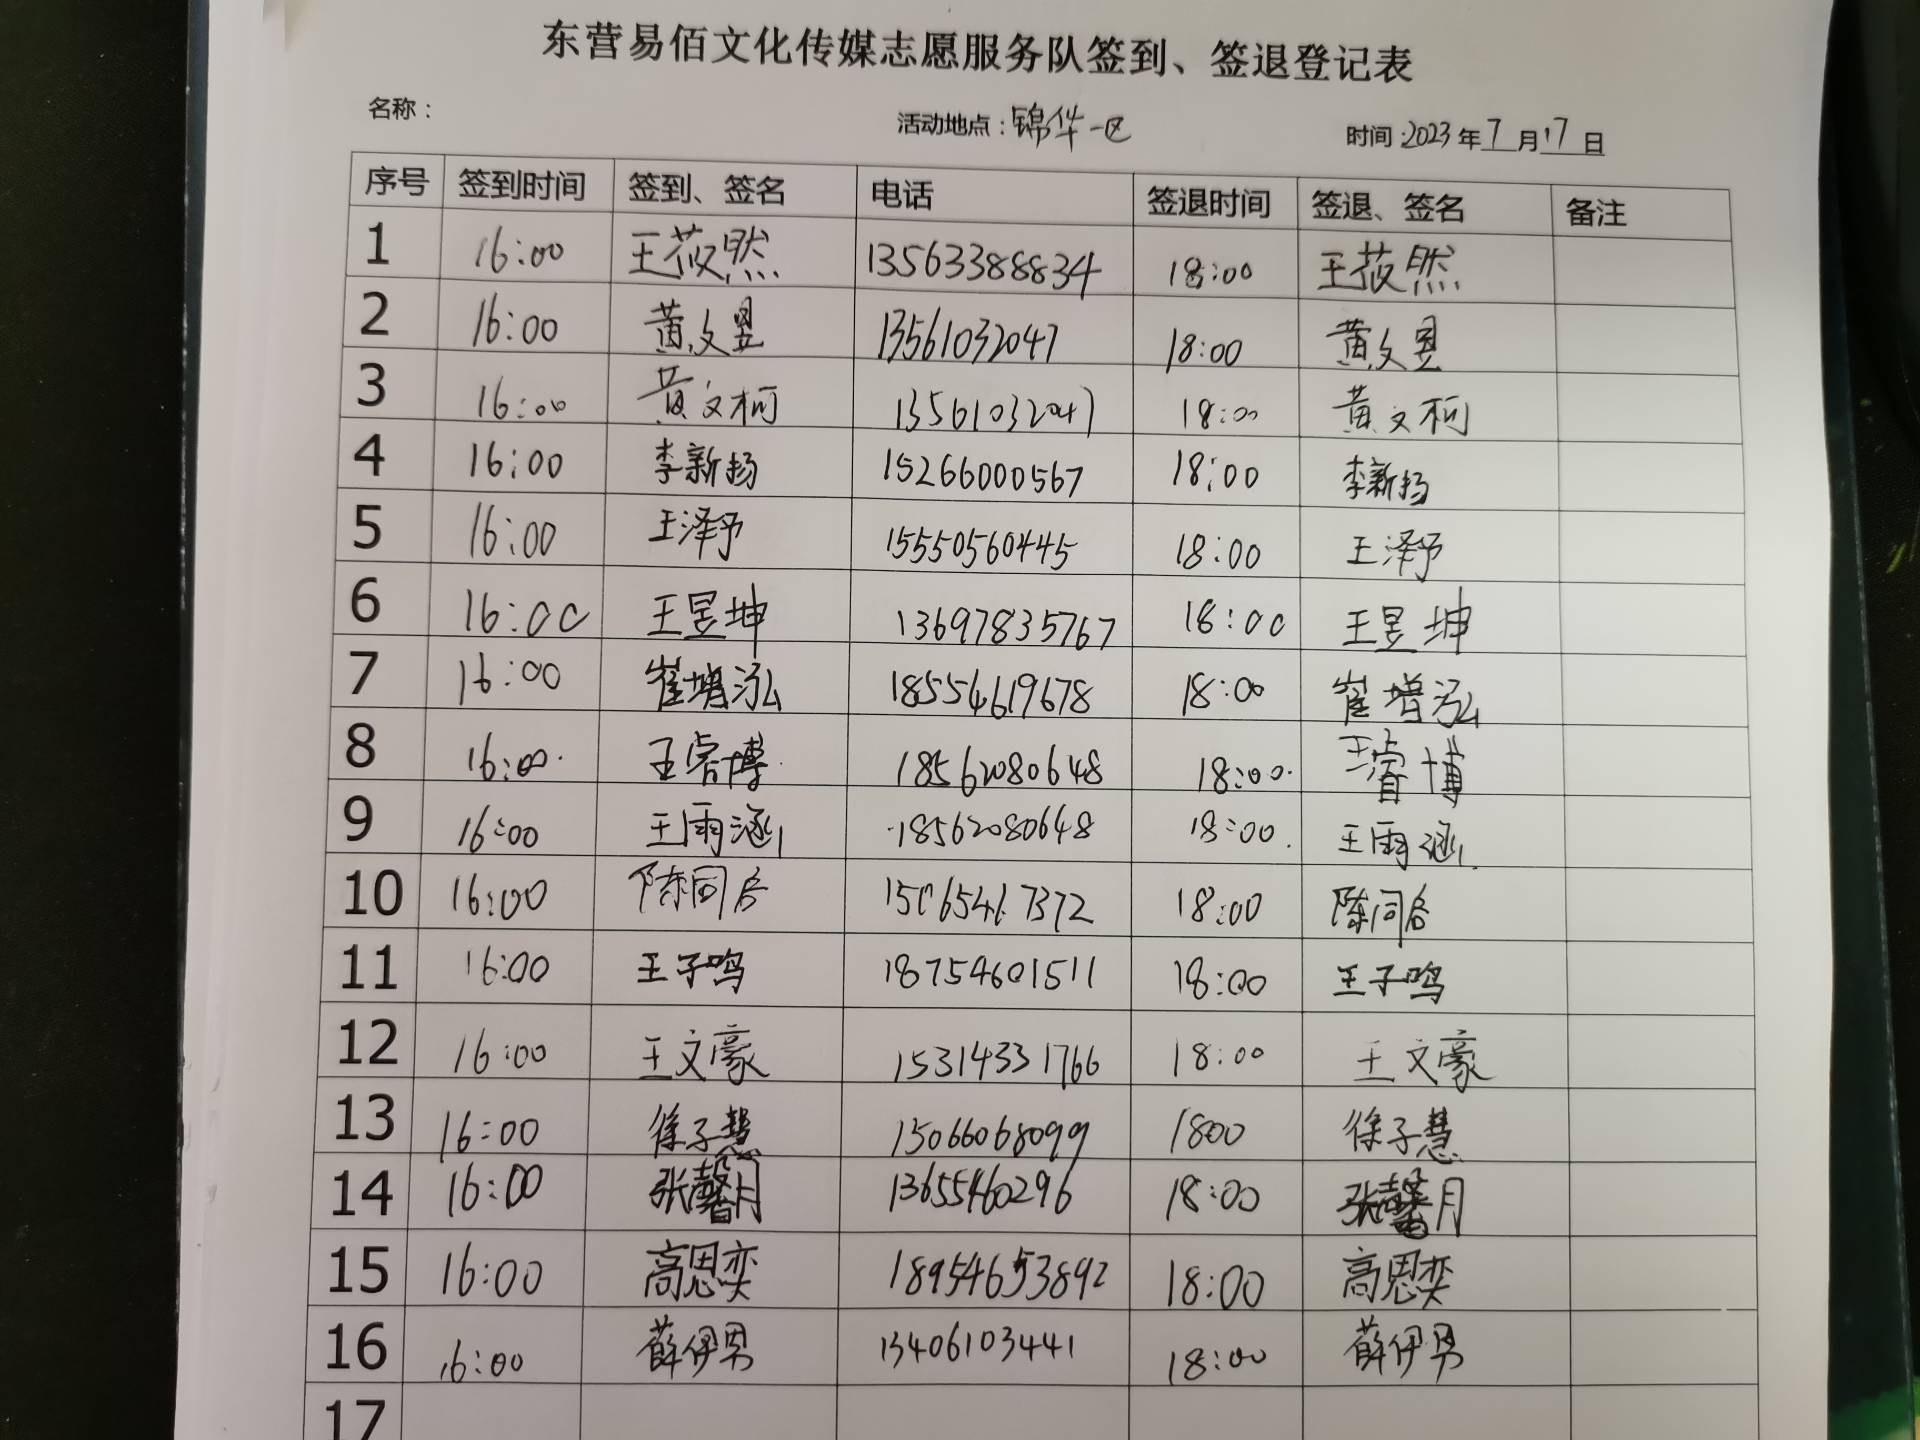 东营易佰文化传媒志愿服务队签到、签退登记表
名称： 活动地点：锦华一区 时间：2023年7月17日
序号 签到时间 签到、签名 电话 签退时间 签退、签名 备注
1 16:00 王莜然 13563388834 18:00 王莜然
2 16:00 黄文昱 13561032047 18:00 黄文昱
3 16:00 黄文柯 13561032047 18:00 黄文柯
4 16:00 李新扬 15266000567 18:00 李新扬
5 16:00 王泽予 15550560445 18:00 王泽予
6 16:00 王昱坤 13697835767 18:00 王昱坤
7 16:00 崔增泓 18554619678 18:00 崔增泓
8 16:00. 王睿博 18562080648 18:00. 王睿博
9 16:00 王雨涵 18562080648 18:00. 王雨涵
10 16:00 陈同启 15065467372 18:00 陈同启
11 16:00 王子鸣 18754601511 18:00 王子鸣
12 16:00 王文豪 15314331766 18:00 王文豪
13 16:00 徐子慧 15066068099 1800 徐子慧
14 16:00 张馨月 13655460296 18:00 张馨月
15 16:00 高思奕 18954653892 18:00 高思奕
16 16:00 薛伊男 13406103441 18:00 薛伊男
17